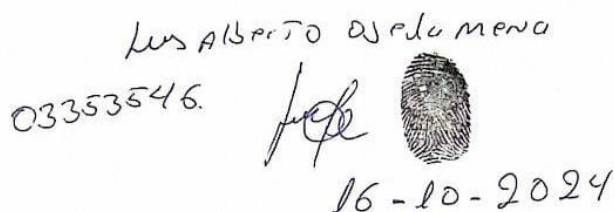 Luis Alberto Ojeda Mena
03353546.
16-10-2024